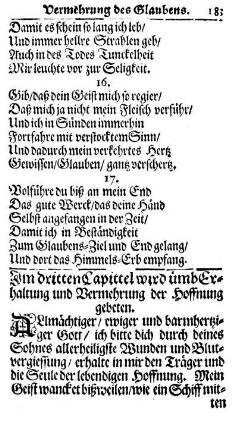 Vermehrung des Glaubens. 183
Damit es schein so lang ich leb/
Und immer hellre Strahlen geb/
Auch in des Todes Tunckelheit
Mir leuchte vor zur Seligkeit.
16.
Gib/daß dein Geist mich so regier/
Daß mich ja nicht mein Fleisch verführ/
Und ich in Sünden immerhin
Fortfahre mit verstocktem Sinn/
Und dadurch mein verkehrtes Hertz
Gewissen/Glauben/ gantz verschertz.
17.
Volführe du biß an mein End
Das gute Werck/das deine Händ
Selbst angefangen in der Zeit/
Damit ich in Beständigkeit
Zum Glaubens-Ziel und End gelang/
Und dort das Himmels-Erb empfang.
Im dritten Capittel wird ümb Er-
haltung und Vermehrung der Hoffnung
gebeten.
ALlmächtiger/ ewiger und barmhertzi-
ger Gott/ ich bitte dich durch deines
Sohnes allerheiligste Wunden und Blut-
vergiessung/ erhalte in mir den Träger und
die Seule der lebendigen Hoffnung. Mein
Geist wancket bißweilen/wie ein Schiff mit-
ten